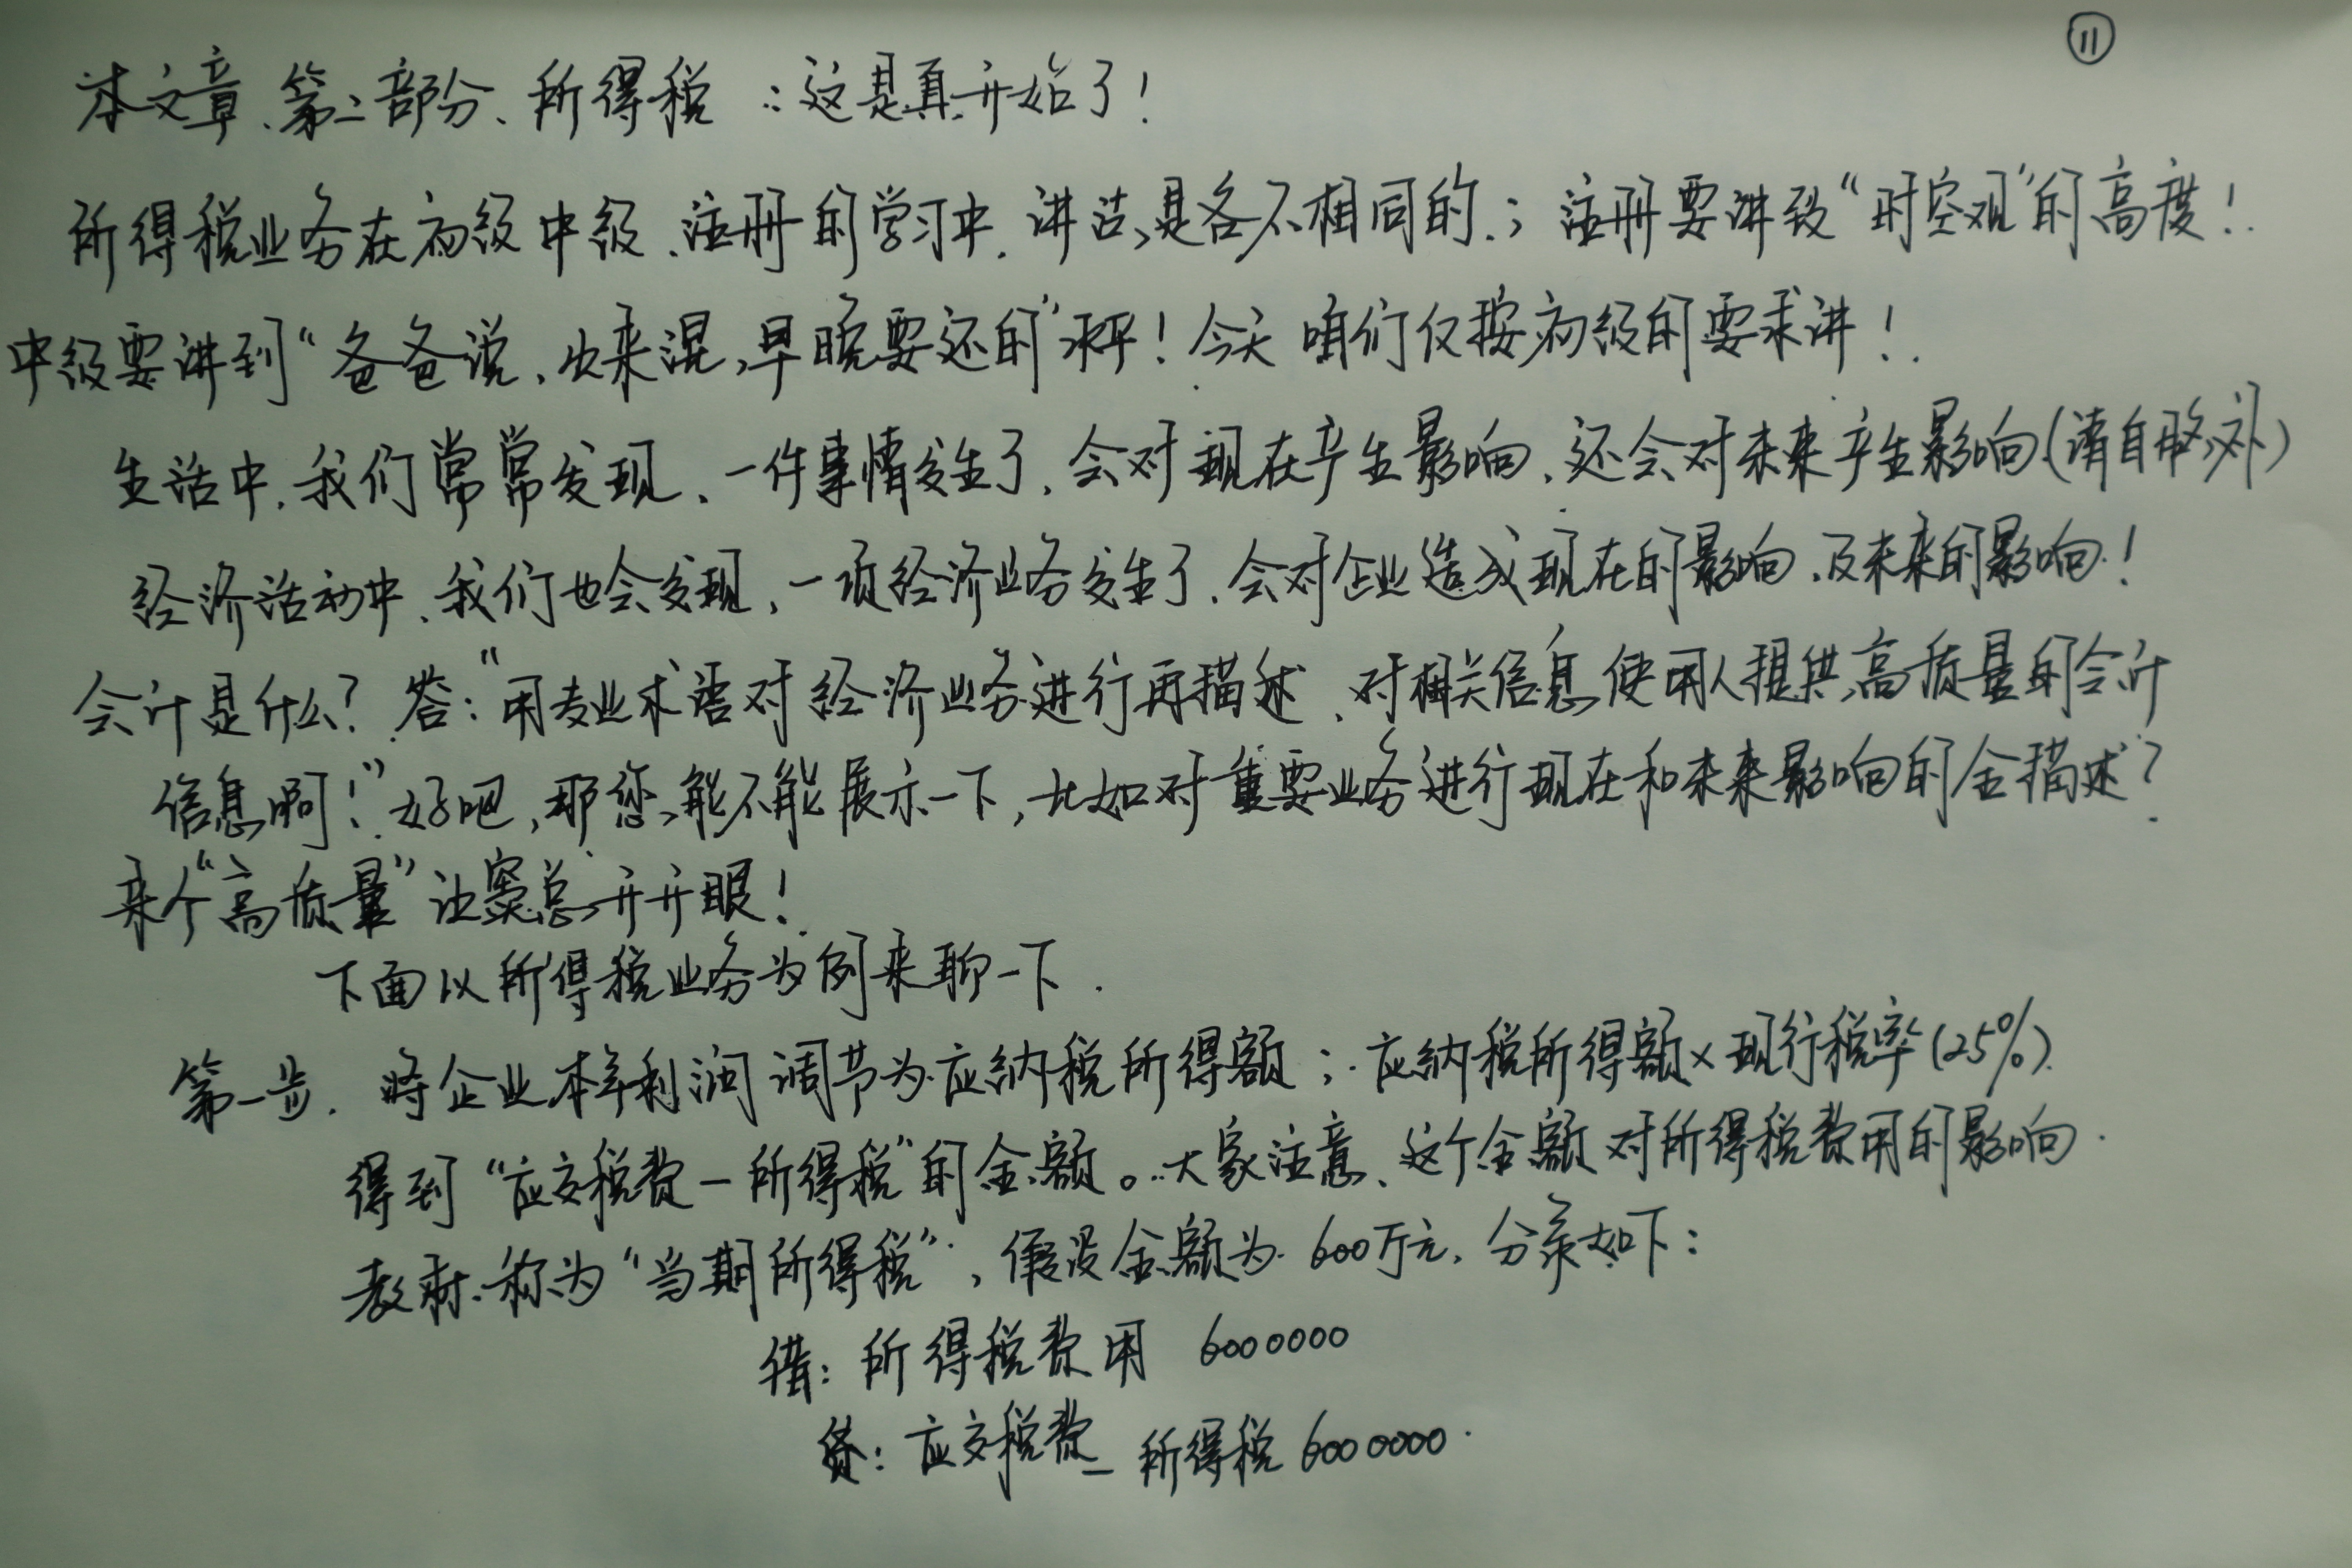 ⑪
本文章、第二部分、所得税：这是真开始了！
所得税业务在初级中级、注册的学习中，讲法是各不相同的；注册要讲到“时空观”的高度！
中级要讲到“爸爸说，出来混，早晚要还的”水平！今天咱们仅按初级的要求讲！
生活中，我们常常发现，一件事情发生了，会对现在产生影响，还会对未来产生影响（请自脑补）
经济活动中，我们也会发现，一项经济业务发生了，会对企业造成现在的影响，及未来的影响！
会计是什么？答：“用专业术语对经济业务进行再描述，对相关信息使用人提供高质量的会计
信息啊！”好吧，那您能不能展示一下，比如对重要业务进行现在和未来影响的全描述？
来个“高质量”让窦总开开眼！
下面以所得税业务为例来聊一下．
第一步．将企业本年利润调节为应纳税所得额；应纳税所得额×现行税率(25%)
得到“应交税费－所得税”的金额。大家注意，这个金额对所得税费用的影响
教材称为“当期所得税”，假设金额为600万元，分录如下：
借：所得税费用 6000000
贷：应交税费－所得税 6000000